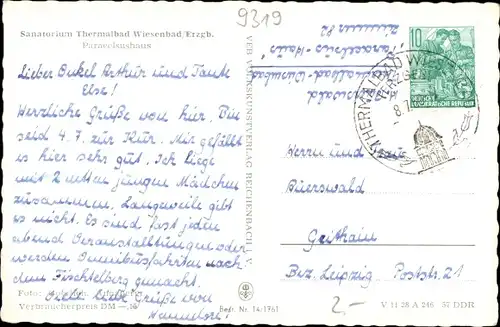 9319
Sanatorium Thermalbad Wiesenbad/Erzgb.
Paracelsushaus
Lieber Onkel Arthur und Tante
Else!
Herzliche Grüße von hier. Bin
seid 4.7. zur Kur. Mir gefällt
es hier sehr gut. Ich liege
mit 2 netten jungen Mädchen
zusammen. Langeweile gibt
es nicht. Es sind fast jeden
abend Veranstaltungen oder
werden Omnibusfahrten nach
dem Fichtelberg gemacht.
Viele liebe Grüße von
Foto:
Verbraucherpreis DM
VERLAG KUNSTVERLAG REICHENBACH I. V.
Bestr. Nr. 14/1761
Zimmer 82
"Paracelsus-Haus"
Thermalbad-Wiesenbad
10
DEUTSCHE DEMOKRATISCHE REPUBLIK
THERMALBAD WIE
(ERZGEB)
8.7.
Herrn und Frau
Auerswald
Geithain
Bez. Leipzig Poststr. 21
2,-
V 11 28 A 246 57 DDR